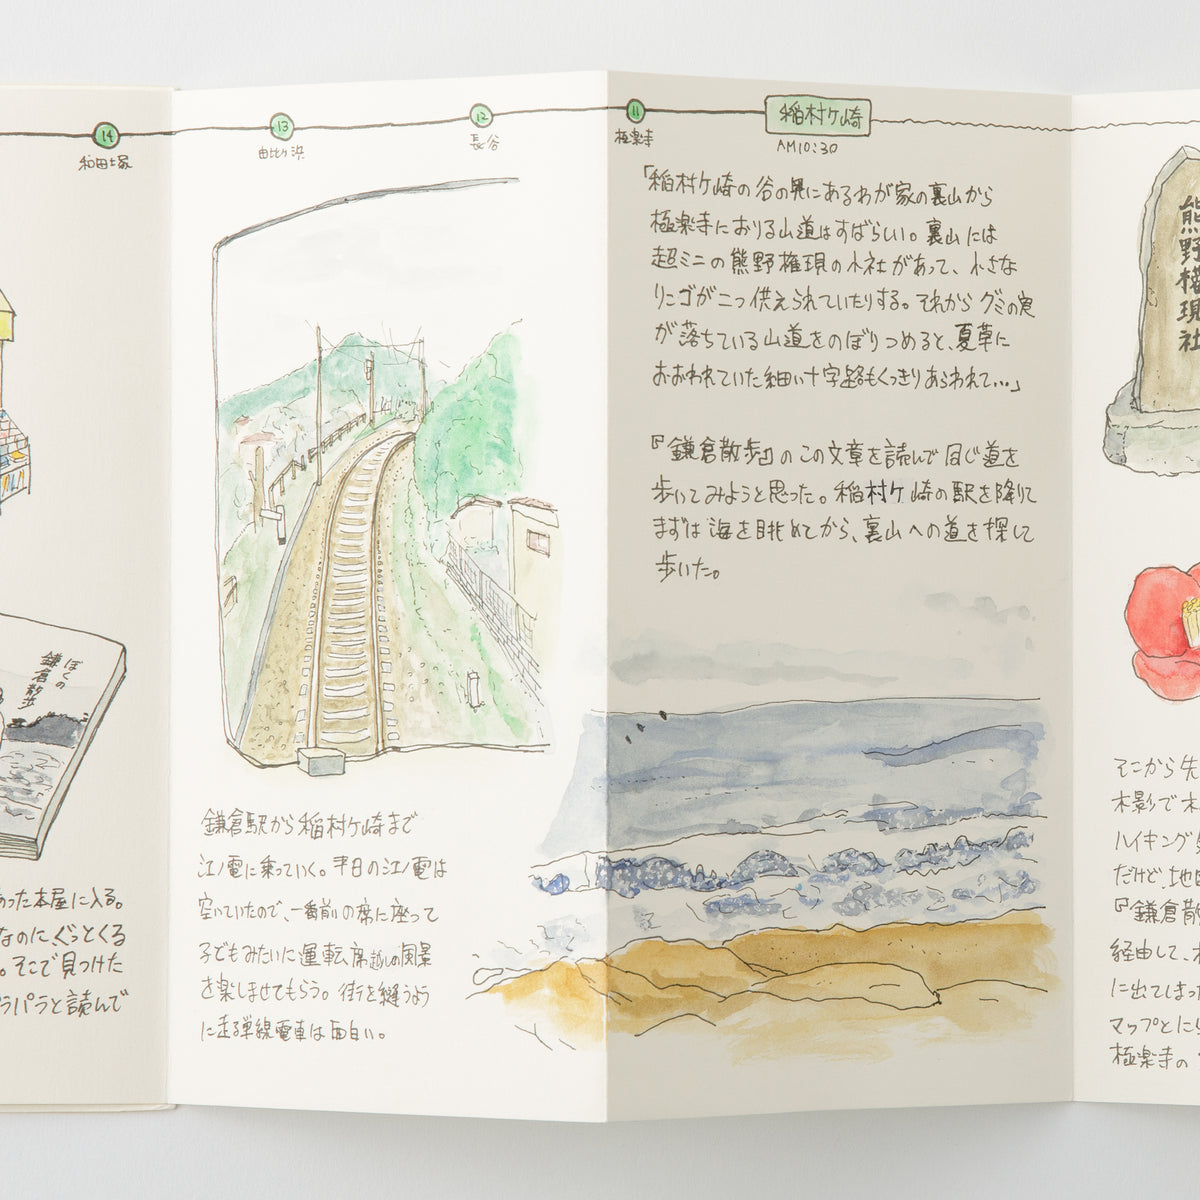 14
和田塚
13
由比ヶ浜
12
長谷
11
極楽寺
稲村ケ崎
AM10:30
ぼくの
鎌倉散歩
あった本屋に入る。
なのに、ぐっとくる
。そこで見つけた
パラパラと読んで
鎌倉駅から稲村ケ崎まで
江ノ電に乗っていく。平日の江ノ電は
空いていたので、一番前の席に座って
子どもみたいに運転席越しの風景
を楽しませてもらう。街を縫うよう
に走る単線電車は面白い。
「稲村ケ崎の谷の奥にあるわが家の裏山から
極楽寺におりる山道はすばらしい。裏山には
超ミニの熊野権現の小社があって、小さな
リンゴが二つ供えられていたりする。それからグミの実
が落ちている山道をのぼりつめると、夏草に
おおわれていた細い十字路もくっきりあらわれて…」
『鎌倉散歩』のこの文章を読んで同じ道を
歩いてみようと思った。稲村ケ崎の駅を降りて
まずは海を眺めてから、裏山への道を探して
歩いた。
熊野権現社
そこから先
木影で木
ハイキング
だけど、地
『鎌倉散
経由して、
に出てしまった
マップとに
極楽寺の